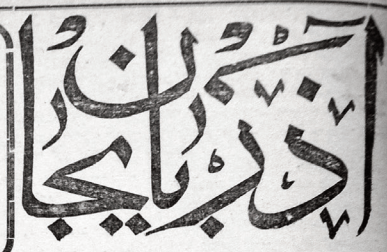 آذربایجان